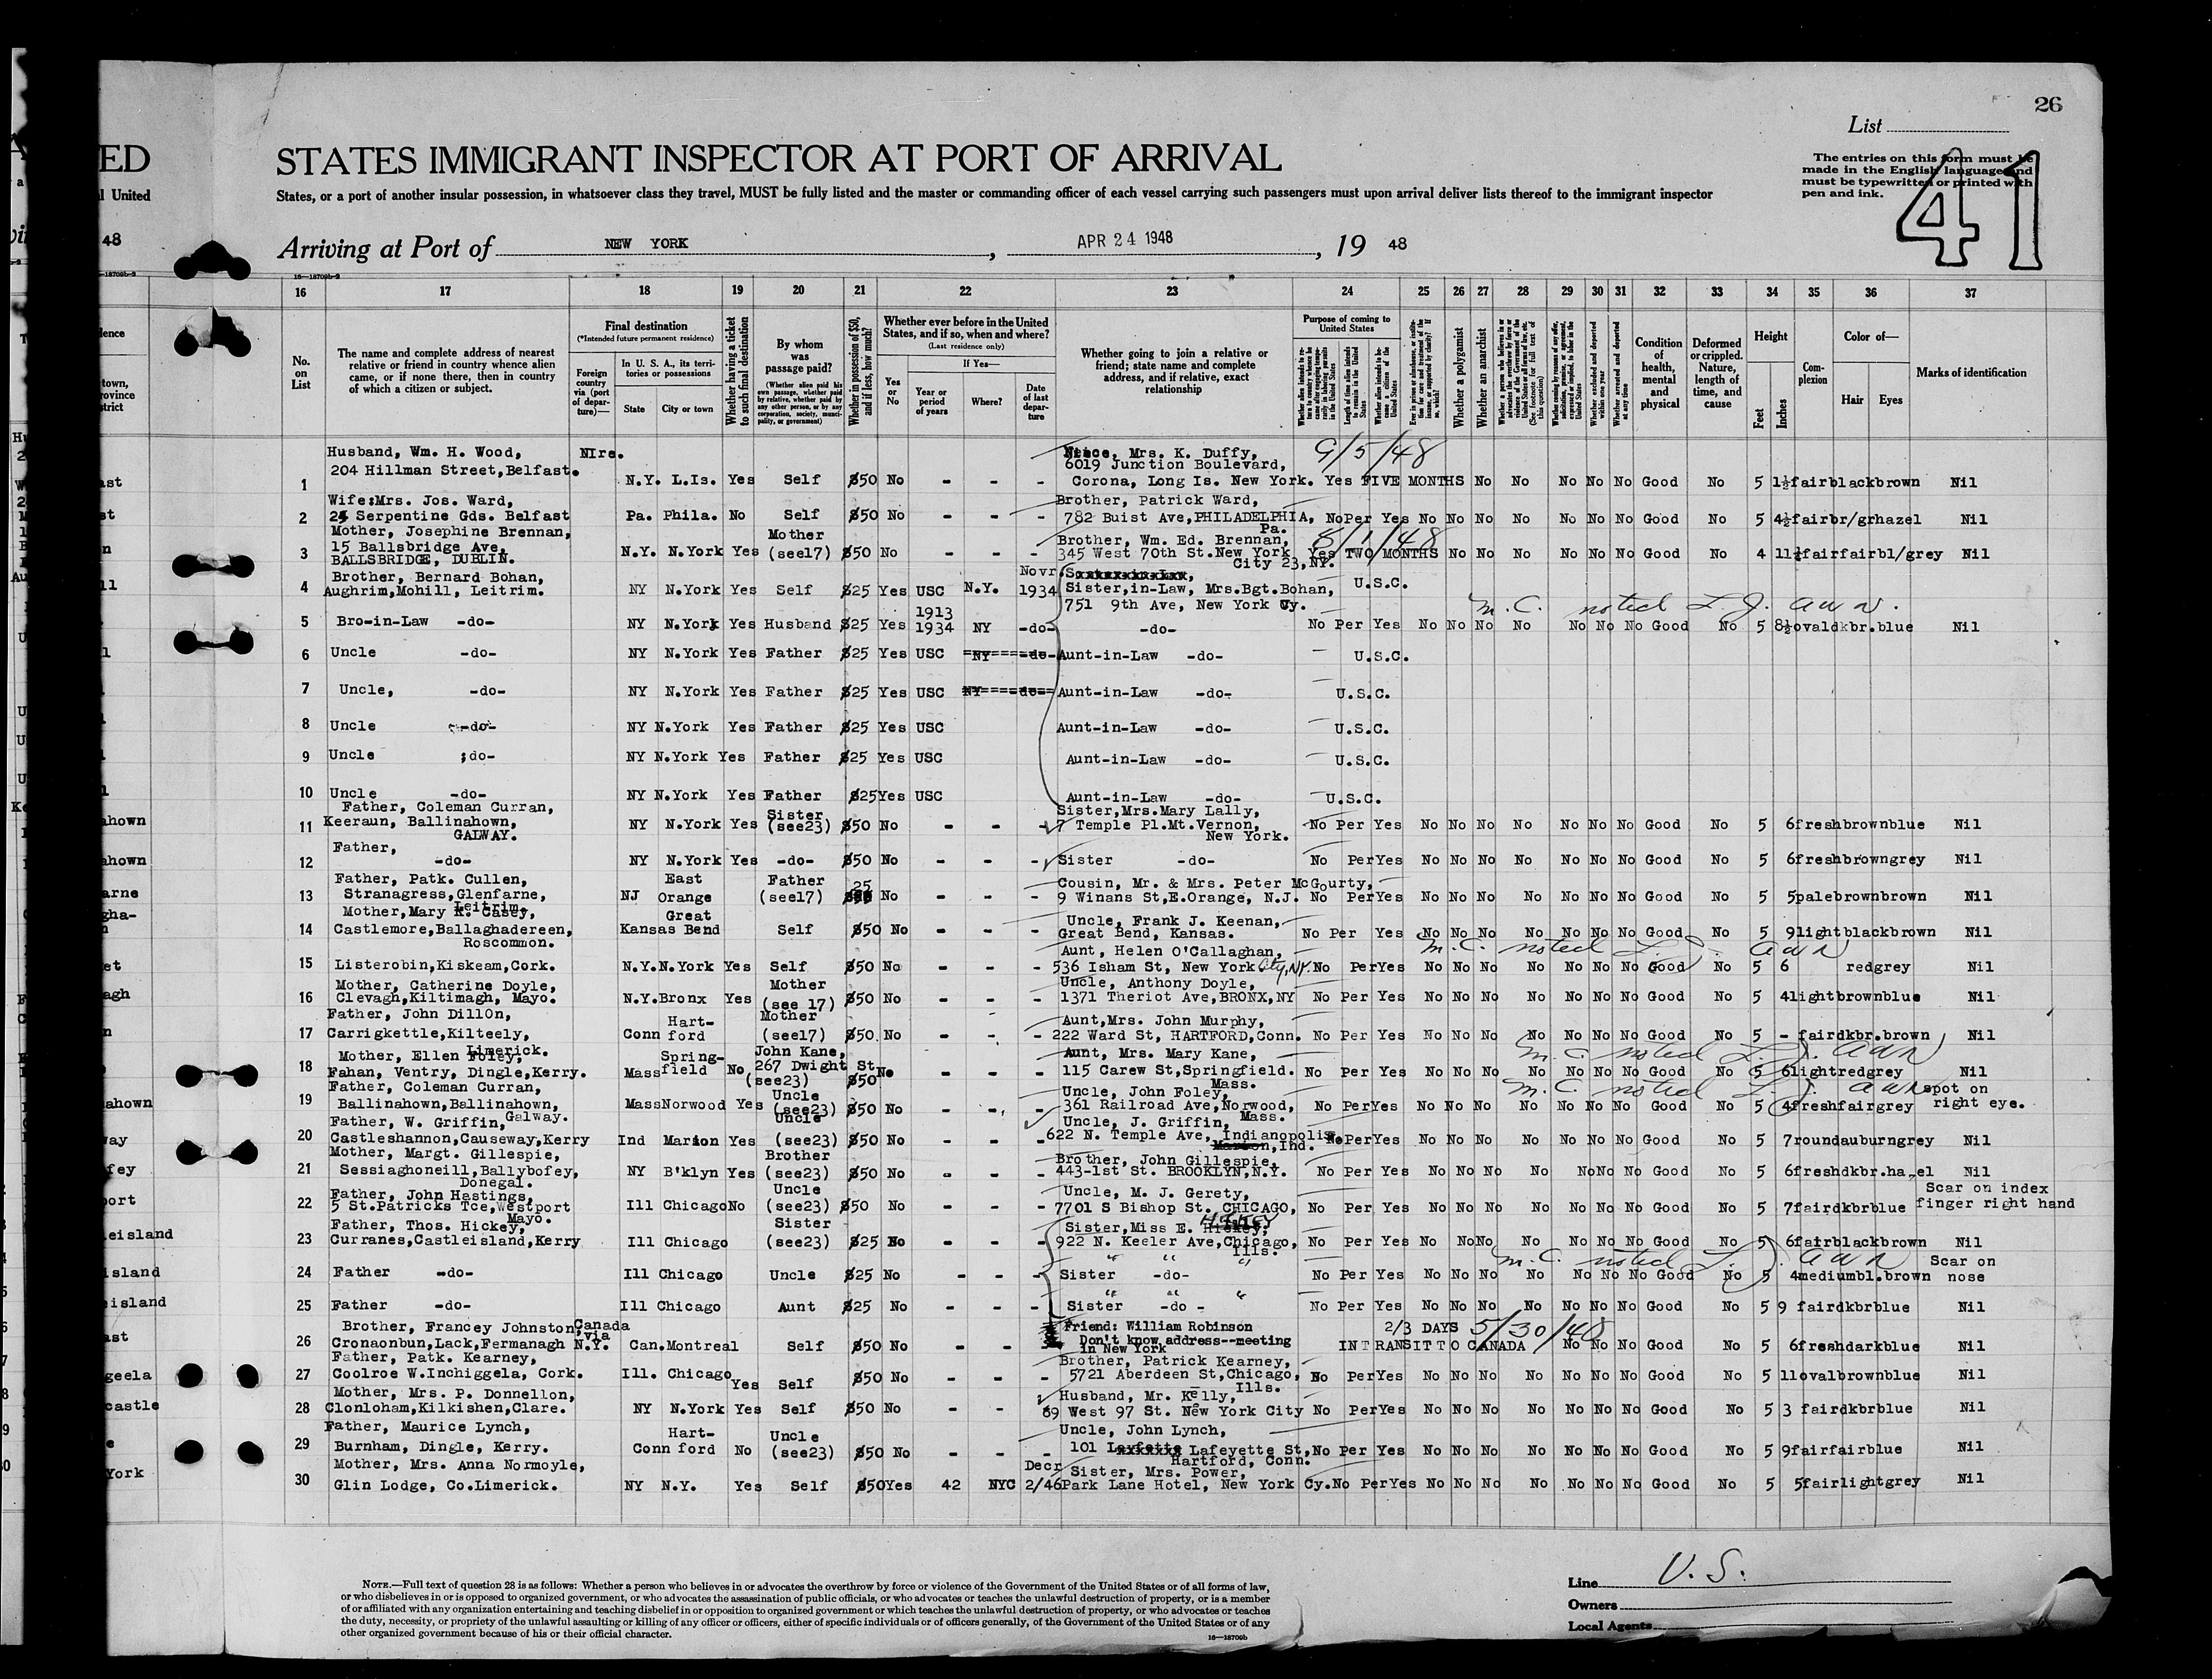 26
List
ED
STATES IMMIGRANT INSPECTOR AT PORT OF ARRIVAL
The entries on this form must be
made in the English language and
must be typewritten or printed with
pen and ink.
41
l United
States, or a port of another insular possession, in whatsoever class they travel, MUST be fully listed and the master or commanding officer of each vessel carrying such passengers must upon arrival deliver lists thereof to the immigrant inspector
48
Arriving at Port of NEW YORK, APR 24 1948, 19 48
16—18709b-2
16 17 18 19 20 21 22 23 24 25 26 27 28 29 30 31 32 33 34 35 36 37
No. on List
The name and complete address of nearest relative or friend in country whence alien came, or if none there, then in country of which a citizen or subject.
Final destination
(*Intended future permanent residence)
Foreign country via (port of departure)—
In U. S. A., its territories or possessions
State City or town
Whether having a ticket to such final destination
By whom was passage paid?
(Whether alien paid his own passage, whether paid by relative, whether paid by any other person, or by any corporation, society, municipality, or government)
Whether in possession of $50, and if less, how much?
Whether ever before in the United States, and if so, when and where?
(Last residence only)
Yes or No
If Yes—
Year or period of years
Where?
Date of last departure
Whether going to join a relative or friend; state name and complete address, and if relative, exact relationship
Purpose of coming to United States
Whether a polygamist
Whether an anarchist
Condition of health, mental and physical
Deformed or crippled. Nature, length of time, and cause
Height
Feet Inches
Complexion
Color of—
Hair Eyes
Marks of identification
Husband, Wm. H. Wood, NIre. Niece, Mrs. K. Duffy, 9/5/48
204 Hillman Street,Belfast. 6019 Junction Boulevard,
1 N.Y. L.Is. Yes Self $50 No - - - Corona, Long Is. New York. Yes FIVE MONTHS No No No No No No Good No 5 1½ fair black brown Nil
Wife:Mrs. Jos. Ward, Brother, Patrick Ward,
2 Serpentine Gds. Belfast Pa. Phila. No Self $50 No - - - 782 Buist Ave,PHILADELPHIA, Pa. No Per Yes No No No No No No No Good No 5 4½ fair br/gr hazel Nil
Mother, Josephine Brennan, Mother Brother, Wm. Ed. Brennan, 8/1/48
3 15 Ballsbridge Ave, N.Y. N.York Yes (see17) $50 No - - - 345 West 70th St.New York Yes TWO MONTHS No No No No No No Good No 4 11½ fair fair bl/grey Nil
BALLSBRIDGE, DUBLIN. City 23,NY.
Brother, Bernard Bohan, Novr.
4 Aughrim,Mohill, Leitrim. NY N.York Yes Self $25 Yes USC N.Y. 1934 Sister,in-Law, Mrs.Bgt.Bohan, U.S.C.
751 9th Ave, New York Cy. m.C. noted
5 Bro-in-Law -do- NY N.York Yes Husband $25 Yes 1913 1934 NY -do- -do- No Per Yes No No No No No No No Good No 5 8½ oval dkbr. blue Nil
6 Uncle -do- NY N.York Yes Father $25 Yes USC NY -do- Aunt-in-Law -do- U.S.C.
7 Uncle, -do- NY N.York Yes Father $25 Yes USC NY -do- Aunt-in-Law -do- U.S.C.
8 Uncle -do- NY N.York Yes Father $25 Yes USC Aunt-in-Law -do- U.S.C.
9 Uncle ;do- NY N.York Yes Father $25 Yes USC Aunt-in-Law -do- U.S.C.
10 Uncle -do- NY N.York Yes Father $25 Yes USC Aunt-in-Law -do- U.S.C.
Father, Coleman Curran, Sister Sister,Mrs.Mary Lally,
11 Keeraun, Ballinahown, NY N.York Yes (see23) $50 No - - - 7 Temple Pl.Mt.Vernon, No Per Yes No No No No No No No Good No 5 6 fresh brown blue Nil
GALWAY. New York.
Father,
12 -do- NY N.York Yes -do- $50 No - - - Sister -do- No Per Yes No No No No No No No Good No 5 6 fresh brown grey Nil
Father, Patk. Cullen, East Father 25 Cousin, Mr. & Mrs. Peter McGourty,
13 Stranagress,Glenfarne, NJ Orange (see17) No - - - 9 Winans St,E.Orange, N.J. No Per Yes No No No No No No No Good No 5 5 pale brown brown Nil
Leitrim.
Mother,Mary K. Casey, Great Uncle, Frank J. Keenan,
14 Castlemore,Ballaghadereen, Kansas Bend Self $50 No - - - Great Bend, Kansas. No Per Yes No No No No No No No Good No 5 9 light black brown Nil
Roscommon. Aunt, Helen O'Callaghan, m.C. noted
15 Listerobin,Kiskeam,Cork. N.Y. N.York Yes Self $50 No - - - 536 Isham St, New York City,N.Y. No Per Yes No No No No No No No Good No 5 6 red grey Nil
Mother, Catherine Doyle, Mother Uncle, Anthony Doyle,
16 Clevagh,Kiltimagh, Mayo. N.Y. Bronx Yes (see 17) $50 No - - - 1371 Theriot Ave,BRONX,NY No Per Yes No No No No No No No Good No 5 4 light brown blue Nil
Father, John Dillon, Hart- Mother Aunt,Mrs. John Murphy,
17 Carrigkettle,Kilteely, Conn ford (see17) $50 No - - - 222 Ward St, HARTFORD,Conn. No Per Yes No No No No No No No Good No 5 - fair dkbr. brown Nil
Limerick.
Mother, Ellen Foley, Spring- John Kane, Aunt, Mrs. Mary Kane, m.C. noted
18 Fahan, Ventry, Dingle,Kerry. Mass field No 267 Dwight St (see23) $50 No - - - 115 Carew St,Springfield. Mass. No Per Yes No No No No No No No Good No 5 6 light red grey Nil
Father, Coleman Curran, Uncle Uncle, John Foley, m.C. noted spot on
19 Ballinahown,Ballinahown, Mass Norwood Yes (see23) $50 No - - - 361 Railroad Ave,Norwood, No Per Yes No No No No No No No Good No 5 4 fresh fair grey right eye.
Galway. Mass.
Father, W. Griffin, Uncle Uncle, J. Griffin,
20 Castleshannon,Causeway,Kerry Ind Marion Yes (see23) $50 No - - - 622 N. Temple Ave, Indianopolis, Ind. No Per Yes No No No No No No No Good No 5 7 round auburn grey Nil
Mother, Margt. Gillespie, Brother Brother, John Gillespie,
21 Sessiaghoneill,Ballybofey, NY B'klyn Yes (see23) $50 No - - - 443-1st St. BROOKLYN,N.Y. No Per Yes No No No No No No No Good No 5 6 fresh dkbr. Nil
Donegal.
Father, John Hastings, Uncle Uncle, M. J. Gerety, Scar on index
22 5 St.Patricks Tce,Westport Ill Chicago No (see23) $50 No - - - 7701 S Bishop St. CHICAGO, No Per Yes No No No No No No No Good No 5 7 fair dkbr blue finger right hand
Mayo.
Father, Thos. Hickey, Sister Sister,Miss E. Hickey,
23 Curranes,Castleisland,Kerry Ill Chicago (see23) $25 No - - - 922 N. Keeler Ave,Chicago, Ills. No Per Yes No No No No No No No Good No 5 6 fair black brown Nil
m.C. noted Scar on
24 Father -do- Ill Chicago Uncle $25 No - - - Sister -do- No Per Yes No No No No No No No Good No 5 4 medium bl. brown nose
25 Father -do- Ill Chicago Aunt $25 No - - - Sister -do- No Per Yes No No No No No No No Good No 5 9 fair dkbr blue Nil
Brother, Francey Johnston, Canada via N.Y. Friend: William Robinson 2/3 DAYS 5/30/48
26 Cronaonbun,Lack,Fermanagh Can. Montreal Self $50 No - - Don't know address--meeting in New York IN TRANSIT TO CANADA No No No Good No 5 6 fresh dark blue Nil
Father, Patk. Kearney, Brother, Patrick Kearney,
27 Coolroe W.Inchiggela, Cork. Ill. Chicago Yes Self $50 No - - - 5721 Aberdeen St,Chicago, Ills. No Per Yes No No No No No No No Good No 5 11 oval brown blue Nil
Mother, Mrs. P. Donnellon, Husband, Mr. Kelly,
28 Clonloham,Kilkishen,Clare. NY N.York Yes Self $50 No - - 69 West 97 St. New York City No Per Yes No No No No No No No Good No 5 3 fair dkbr blue Nil
Father, Maurice Lynch, Hart- Uncle Uncle, John Lynch,
29 Burnham, Dingle, Kerry. Conn ford No (see23) $50 No - - - 101 Lafeyette St, No Per Yes No No No No No No No Good No 5 9 fair fair blue Nil
Hartford, Conn.
Mother, Mrs. Anna Normoyle, Decr Sister, Mrs. Power,
30 Glin Lodge, Co.Limerick. NY N.Y. Yes Self $50 Yes 42 NYC 2/46 Park Lane Hotel, New York Cy. No Per Yes No No No No No No No Good No 5 5 fair light grey Nil
NOTE.—Full text of question 28 is as follows: Whether a person who believes in or advocates the overthrow by force or violence of the Government of the United States or of all forms of law,
or who disbelieves in or is opposed to organized government, or who advocates the assassination of public officials, or who advocates or teaches the unlawful destruction of property, or is a member
of or affiliated with any organization entertaining and teaching disbelief in or opposition to organized government or which teaches the unlawful destruction of property, or who advocates or teaches
the duty, necessity, or propriety of the unlawful assaulting or killing of any officer or officers, either of specific individuals or of officers generally, of the Government of the United States or of any
other organized government because of his or their official character.
16—18709b
Line U.S.
Owners
Local Agents